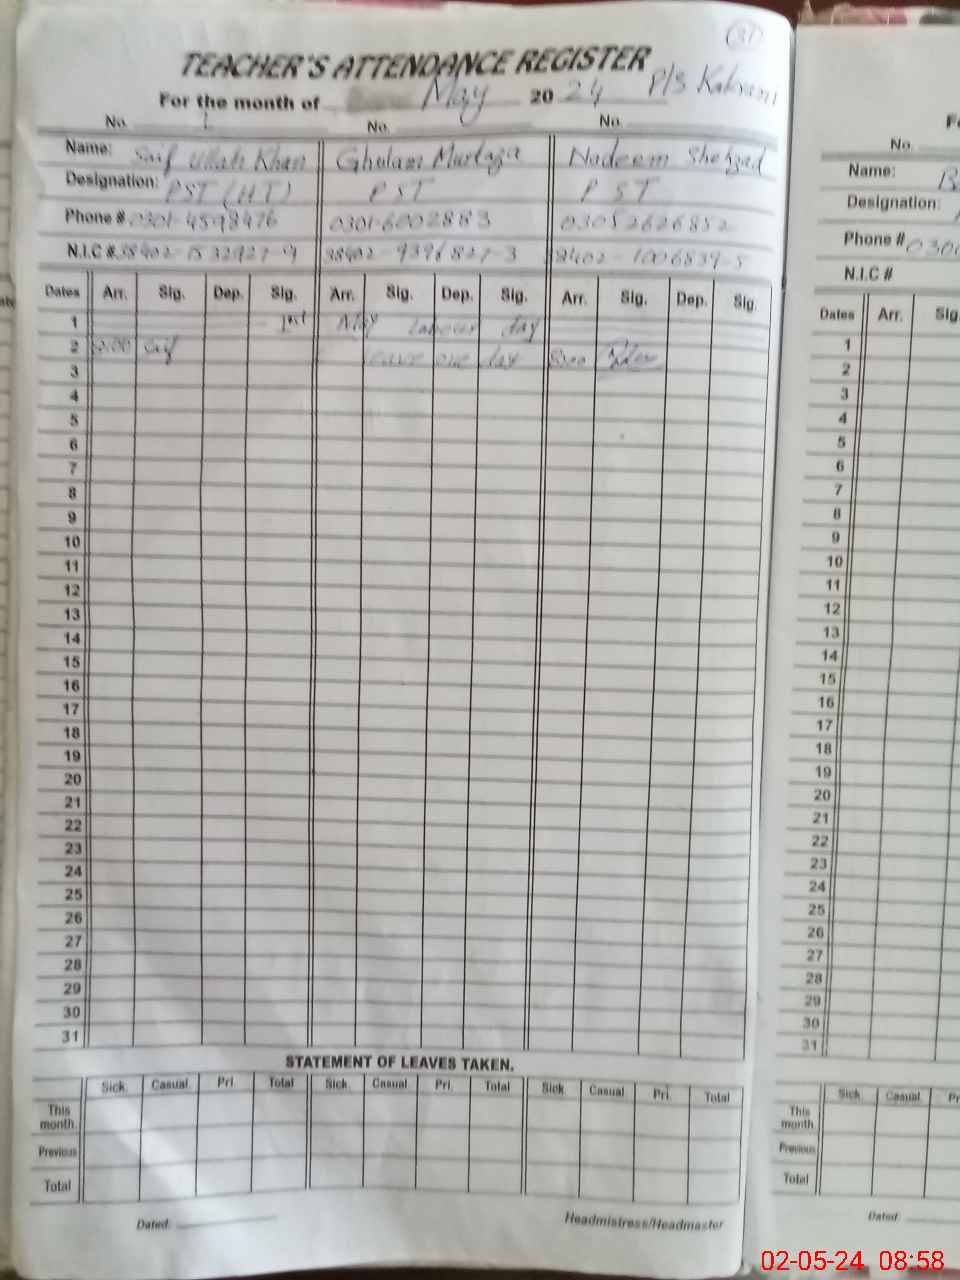 31
TEACHER'S ATTENDANCE REGISTER
For the month of May 20 24 P/S Kahrani
No. 1 No. No.
Name: Saif Ullah Khan Ghulam Murtaza Nadeem Shehzad
Designation: PST (HT) PST PST
Phone # 0301-4598476 0301-6002883 03052626852
N.I.C # 38402-1532927-9 38402-9396827-3 38402-1006839-5
Dates Arr. Sig. Dep. Sig. Arr. Sig. Dep. Sig. Arr. Sig. Dep. Sig.
1 1st May labour day
2 8:00 Saif leave one day 8:00
3
4
5
6
7
8
9
10
11
12
13
14
15
16
17
18
19
20
21
22
23
24
25
26
27
28
29
30
31
STATEMENT OF LEAVES TAKEN.
Sick. Casual Pri. Total Sick. Casual Pri. Total Sick. Casual Pri. Total
This month
Previous
Total
Dated: Headmistress/Headmaster
No.
Name:
Designation:
Phone # 030
N.I.C #
Dates Arr. Sig.
1
2
3
4
5
6
7
8
9
10
11
12
13
14
15
16
17
18
19
20
21
22
23
24
25
26
27
28
29
30
31
Sick. Casual
This month
Previous
Total
Dated:
02-05-24 08:58